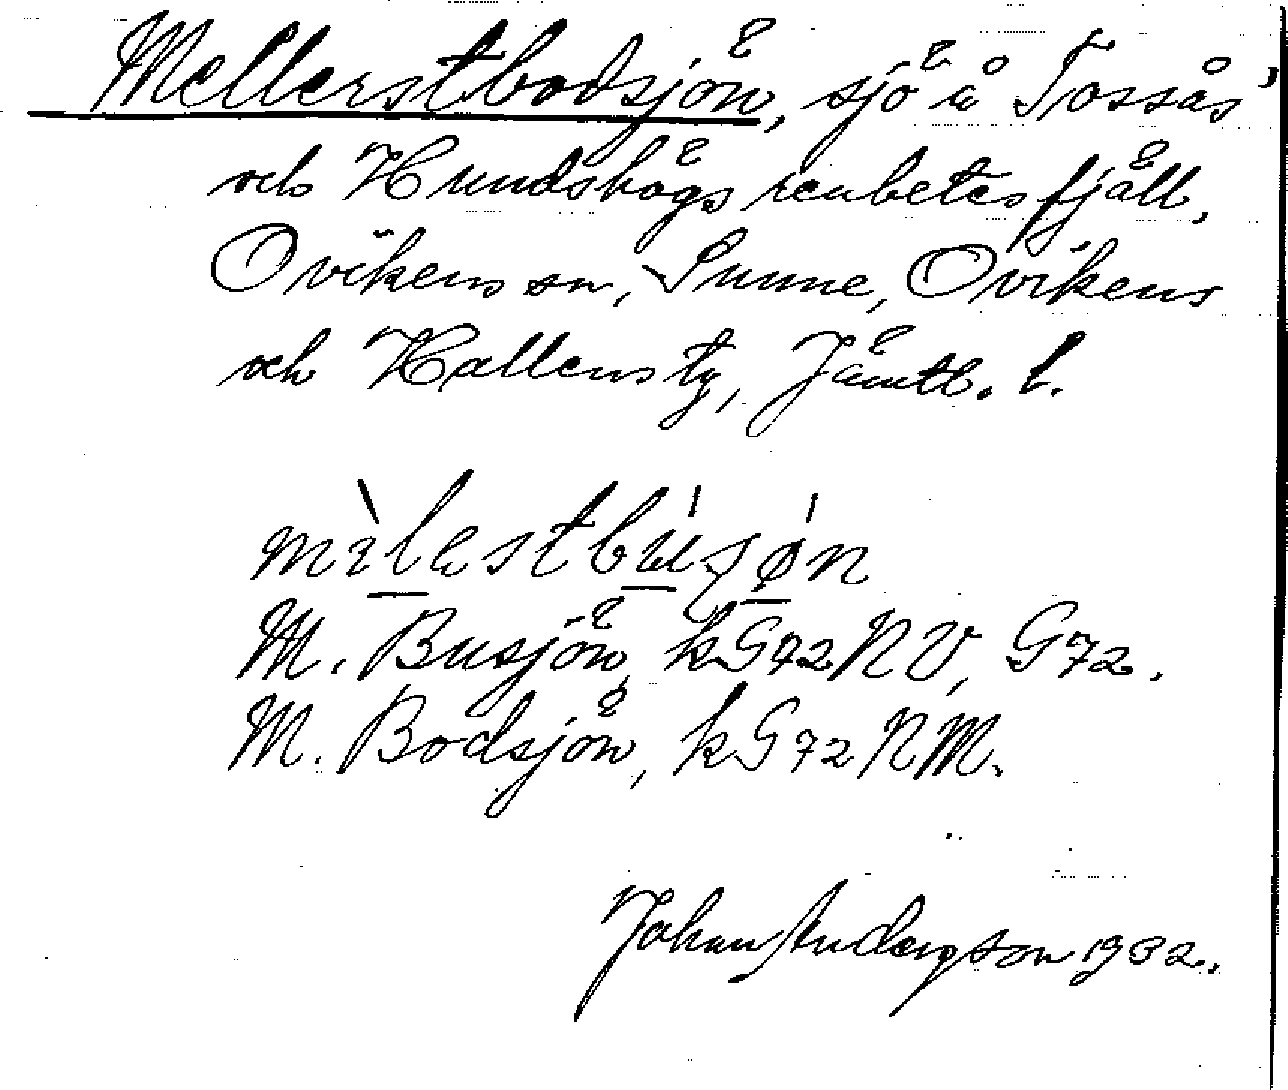 Mellerstbodsjön, sjö å Tossås
och Hundshögs renbetesfjäll,
Ovikens sn, Sunne, Ovikens
och Hallens tg, Jämtl. l.
M. Busjön, kG72NV, G72.
M. Bodsjön, kG72NM.
Johan Andersson 1932.